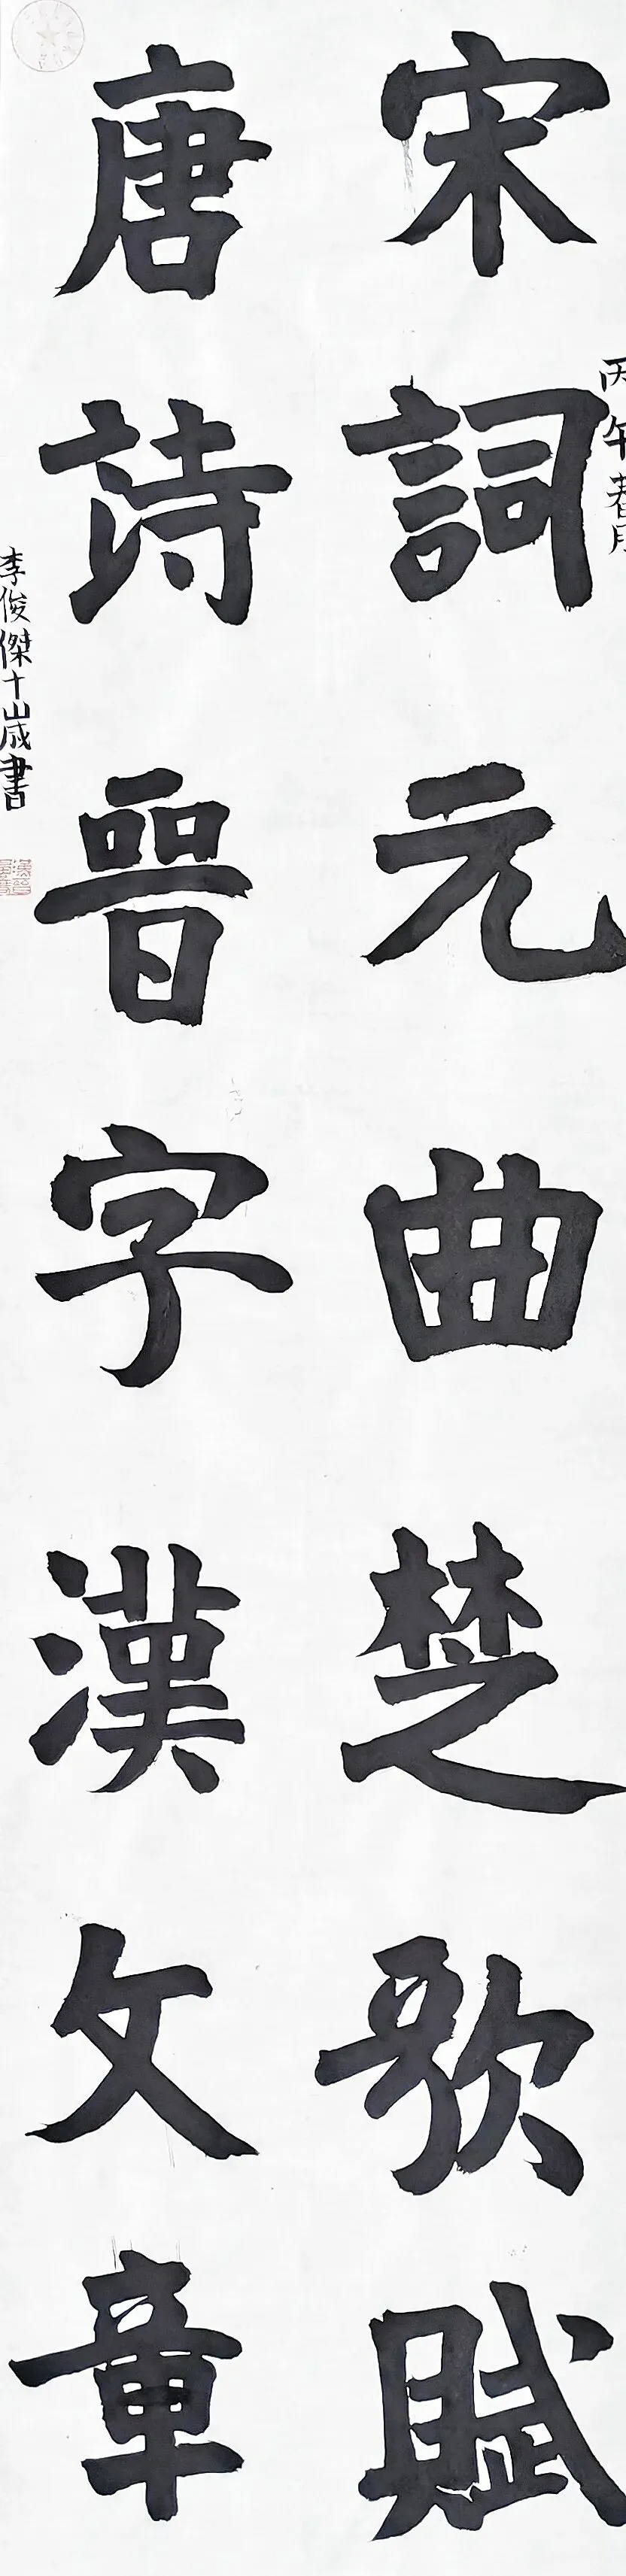 丙午春月
宋詞元曲楚歌賦
唐詩晉字漢文章
李俊傑十歲書